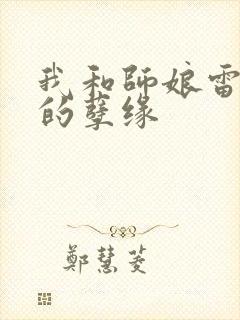 我和師娘雷
的孽缘
鄭慧菱